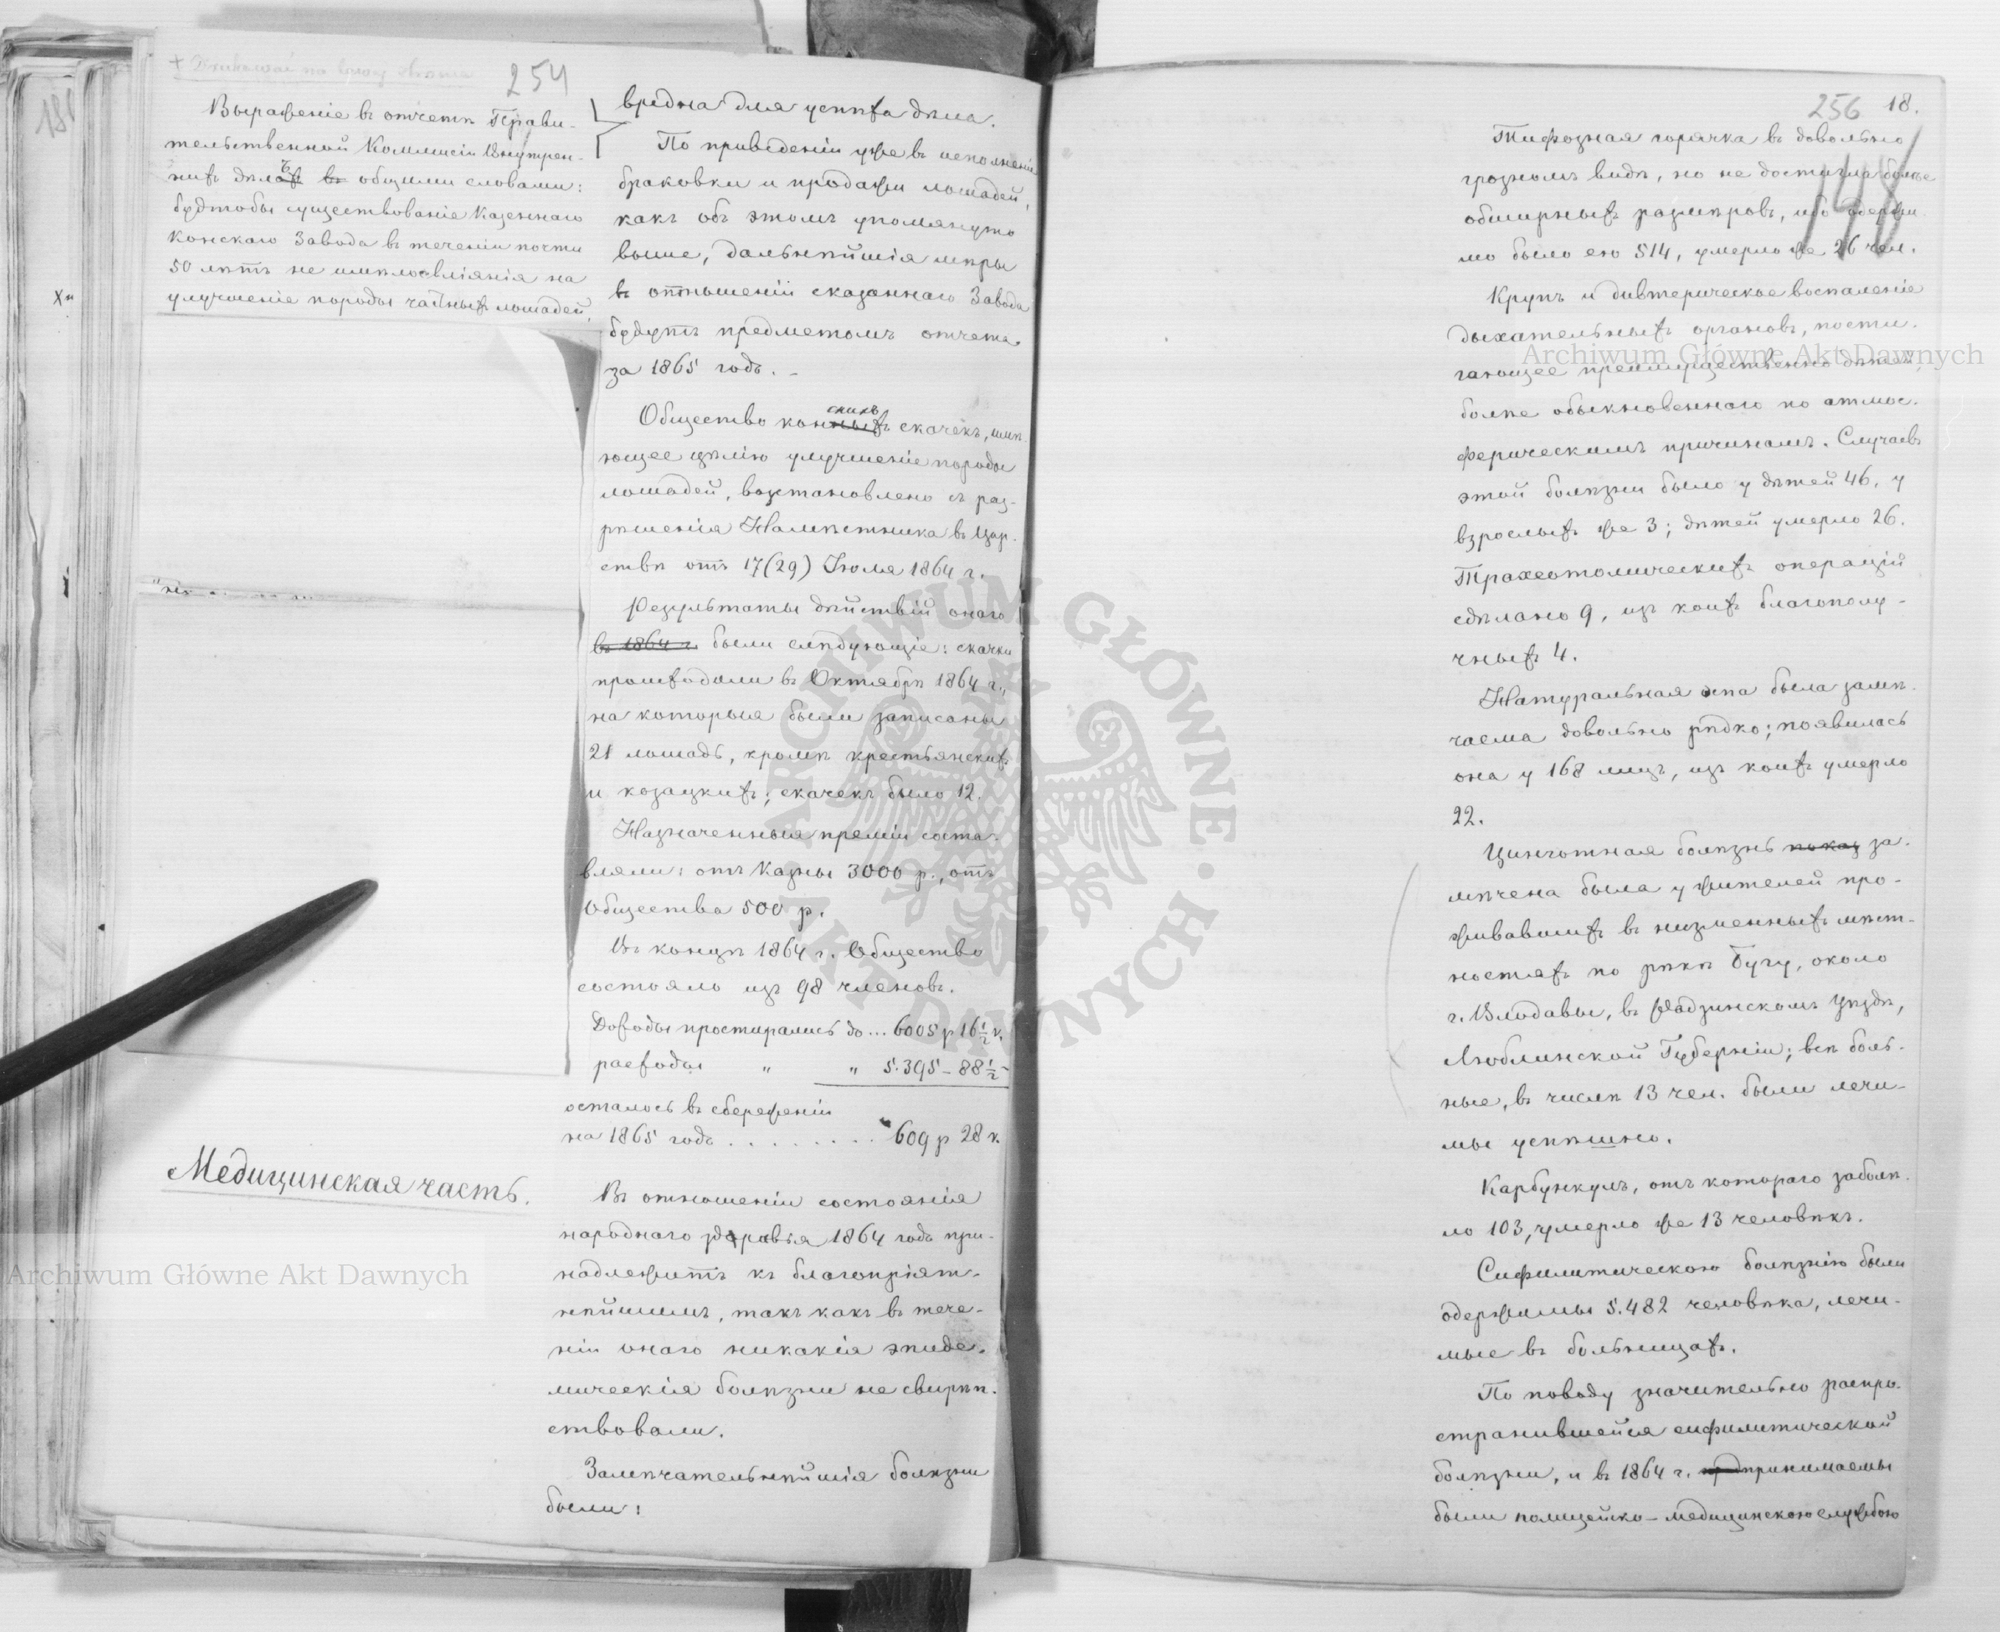 254
Выраженіе въ отчетѣ Прави-
тельственной Коммисіи Внутрен-
нихъ дѣлъ общими словами:
будтобы существованіе Казеннаго
Конскаго Завода въ теченіи почти
50 лѣтъ не имѣло вліянія на
улучшеніе породы частныхъ лошадей,
вредна для успѣха дѣла.
По приведеніи уже въ исполненіе
браковки и продажи лошадей,
какъ объ этомъ упомянуто
выше, дальнѣйшія мѣры
въ отношеніи сказаннаго Завода
будутъ предметомъ отчета
за 1865 годъ. -
Общество конскихъ скачекъ, имѣ-
ющее цѣлію улучшеніе породы
лошадей, возстановлено съ раз-
рѣшенія Намѣстника въ Цар-
ствѣ отъ 17(29) Іюля 1864 г.
Результаты дѣйствій онаго
въ 1864 г. были слѣдующіе: скачки
происходили въ Октябрѣ 1864 г.,
на которыя были записаны
21 лошадь, кромѣ крестьянскихъ
и козацкихъ; скачекъ было 12.
Назначенныя преміи соста-
вляли: отъ Казны 3000 р., отъ
Общества 500 р.
Въ концѣ 1864 г. Общество
состояло изъ 98 членовъ.
Доходы простирались до ... 6005 р 16 1/2 к.
расходы " " 5.395 - 88 1/2 -
осталось въ сбереженіи
на 1865 годъ . . . . . . . . 609 р 28 к.
Медицинская часть.
Въ отношеніи состоянія
народнаго здравія 1864 годъ при-
надлежитъ къ благопріят-
нѣйшимъ, такъ какъ въ тече-
ніи онаго никакія эпиде-
мическія болѣзни не свирѣп-
ствовали.
Замѣчательнѣйшія болѣзни
были:
256 18.
148
Тифозная горячка въ довольно
грозномъ видѣ, но не достигла болѣе
обширныхъ размѣровъ, ибо одержи
мо было ею 514, умерло же 26 чел.
Крупъ и дивтерическое воспаленіе
дыхательныхъ органовъ, пости-
гающее преимущественно дѣтей,
болѣе обыкновеннаго по атмос-
ферическимъ причинамъ. Случаевъ
этой болѣзни было у дѣтей 46, у
взрослыхъ же 3; дѣтей умерло 26.
Трахеотомическихъ операцій
сдѣлано 9, изъ коихъ благополу-
чныхъ 4.
Натуральная оспа была замѣ-
чаема довольно рѣдко; появилась
она у 168 лицъ, изъ коихъ умерло
22.
Цинготная болѣзнь за-
мѣчена была у жителей про-
живавшихъ въ низменныхъ мѣст-
ностяхъ по рѣкѣ Бугу, около
г. Влодавы, въ Радзинскомъ уѣздѣ,
Люблинской Губерніи; всѣ боль-
ные, въ числѣ 13 чел. были лечи-
мы успѣшно.
Карбункулъ, отъ котораго заболѣ-
ло 103, умерло же 13 человѣкъ.
Сифилитическою болѣзнію были
одержимы 5.482 человѣка, лечи-
мые въ больницахъ.
По поводу значительно распро-
странившейся сифилитической
болѣзни, и въ 1864 г. принимаемы
были полицейско-медицинскою службою
Archiwum Główne Akt Dawnych
Archiwum Główne Akt Dawnych
ARCHIWUM GŁÓWNE · AKT DAWNYCH ·